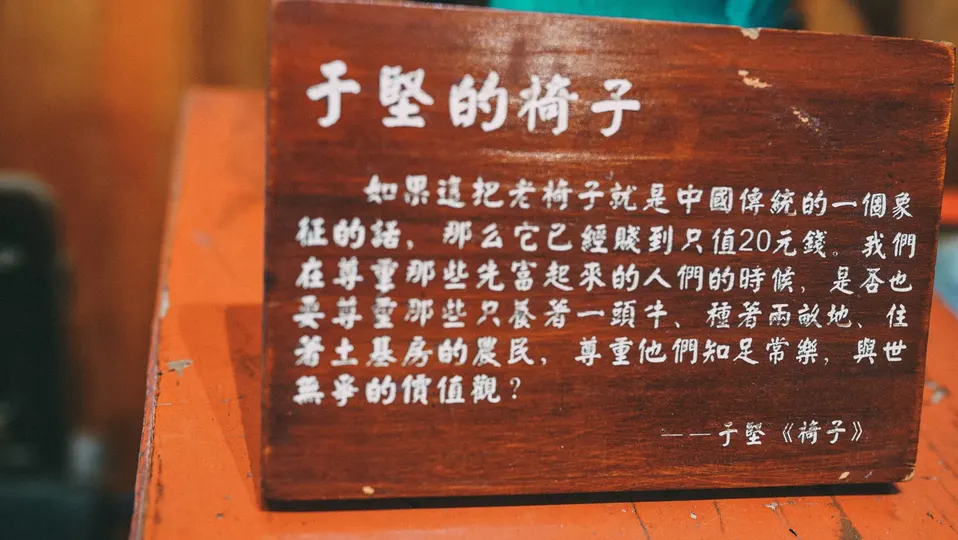 于堅的椅子
如果這把老椅子就是中國傳統的一個象
征的話，那么它已經賤到只值20元錢。我們
在尊重那些先富起來的人們的時候，是否也
要尊重那些只養著一頭牛、種著兩畝地、住
著土基房的農民，尊重他們知足常樂，與世
無爭的價值觀？
——于堅《椅子》